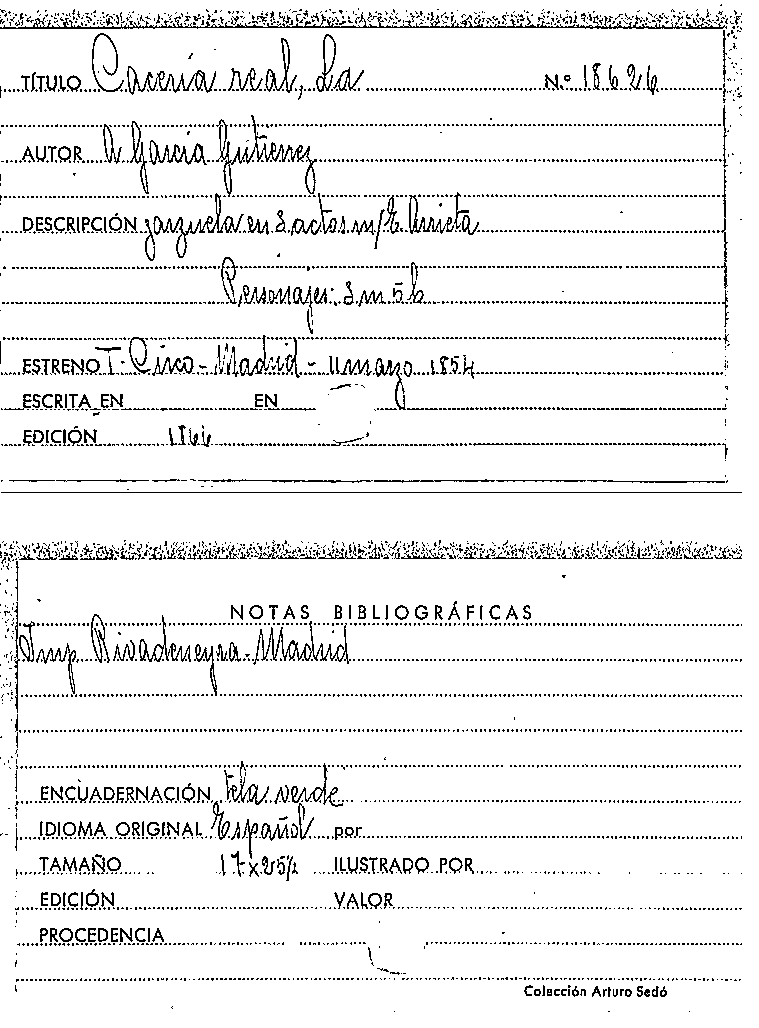 TÍTULO Cacería real, La N.º 18626
AUTOR A García Gutierrez
DESCRIPCIÓN zarzuela en 3 actos m/E. Arrieta
Personajes: 3 m 5 h
ESTRENO T. Circo - Madrid - 11 marzo 1854
ESCRITA EN EN
EDICIÓN 1866
NOTAS BIBLIOGRÁFICAS
Imp Rivadeneyra - Madrid
ENCUADERNACIÓN tela verde
IDIOMA ORIGINAL Español por
TAMAÑO 17 x 25½ ILUSTRADO POR
EDICIÓN VALOR
PROCEDENCIA
Colección Arturo Sedó